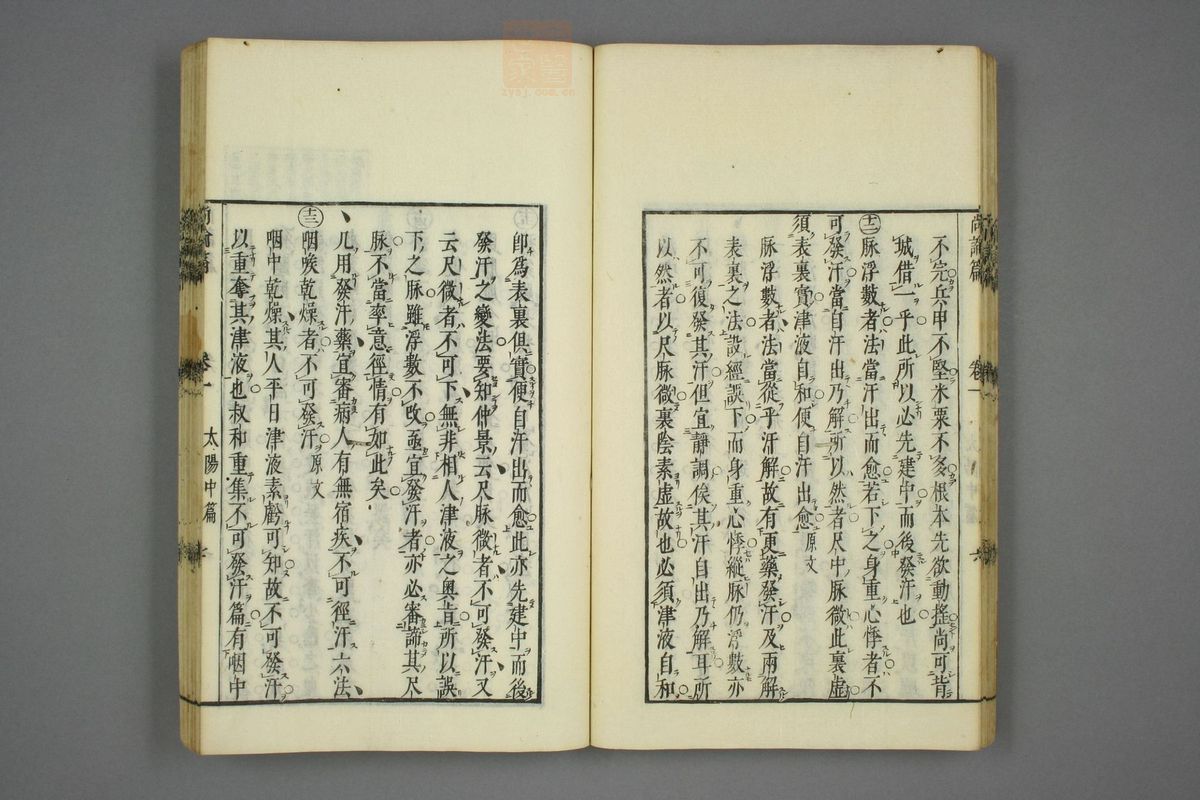 尚論篇 卷一
不完兵甲不堅米粟不多根本先欲動搖尚可背
城借一乎此所以必先建中而後發汗也
㊁脉浮數者法當汗出而愈若下之身重心悸者不
可發汗當自汗出乃解所以然者尺中脉微此裏虛
須表裏實津液自和便自汗出愈原文
脉浮數者法當從乎汗解故有更藥發汗及兩解
表裏之法設經誤下而身重心悸縱脉仍浮數亦
不可復發其汗但宜靜調俟其汗自出乃解耳所
以然者以尺脉微裏陰素虛故也必須津液自和
即爲表裏俱實便自汗出而愈此亦先建中而後
發汗之變法要知仲景云尺脉微者不可發汗又
云尺微者不可下無非相人津液之奧旨所以誤
下之脉雖浮數不改亟宜發汗者亦必審諦其尺
脉不當率意徑情有如此矣
凡用發汗藥宜審病人有無宿疾不可徑汗六法
十三咽喉乾燥者不可發汗原文
咽中乾燥其人平日津液素虧可知故不可發汗
以重奪其津液也叔和重集不可發汗篇有咽中
卷一 太陽中篇
zysj.com.cn